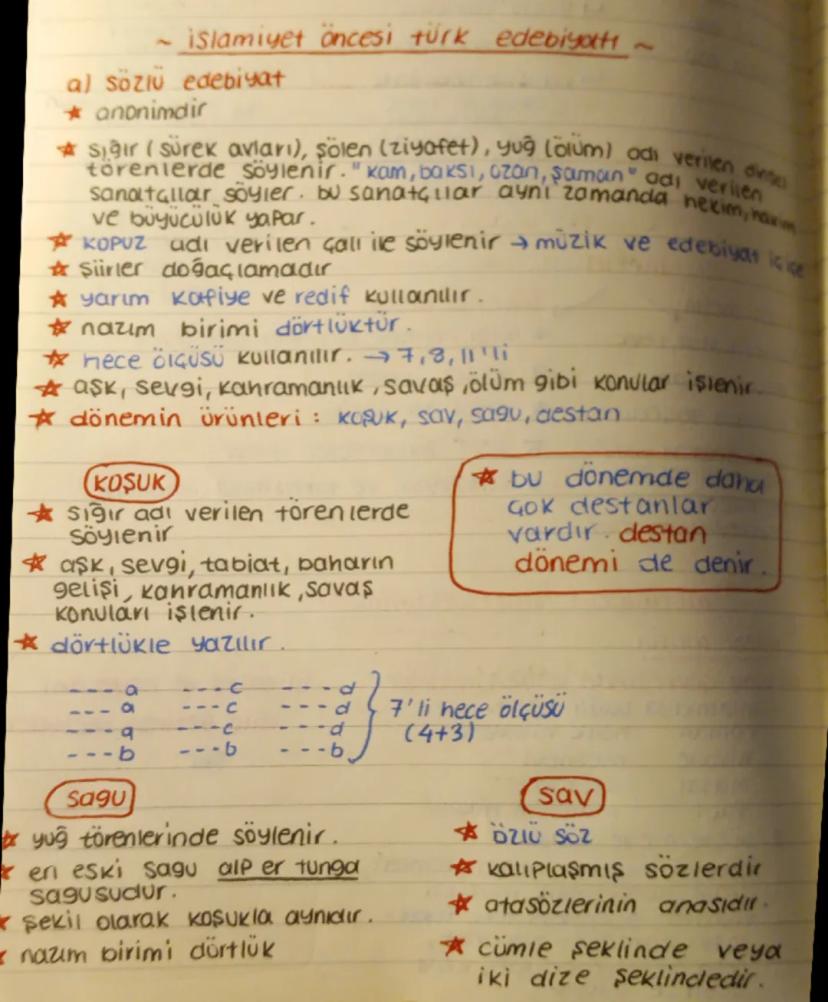 ~ islamiyet öncesi türk edebiyatı ~
a) sözlü edebiyat
★ anonimdir
★ sığır (sürek avları), şölen (ziyafet), yuğ (ölüm) adı verilen dinsel
törenlerde söylenir. "kam, baksı, ozan, şaman" adı verilen
sanatçılar söyler. bu sanatçılar aynı zamanda hekim,
ve büyücülük yapar.
★ kopuz adı verilen çalı ile söylenir → müzik ve edebiyat iç içe
★ şiirler doğaçlamadır
★ yarım kafiye ve redif kullanılır.
★ nazım birimi dörtlüktür.
★ hece ölçüsü kullanılır. → 7, 8, 11'li
★ aşk, sevgi, kahramanlık, savaş, ölüm gibi konular işlenir.
★ dönemin ürünleri : koşuk, sav, sagu, destan
KOŞUK
★ sığır adı verilen törenlerde
söylenir
★ aşk, sevgi, tabiat, baharın
gelişi, kahramanlık, savaş
konuları işlenir.
★ dörtlükle yazılır.
★ bu dönemde daha
çok destanlar
vardır. destan
dönemi de denir.
--- a --- c --- d
--- a --- c --- d
--- a --- c --- d
--- b --- b --- b
7'li hece ölçüsü
(4+3)
sagu
★ yuğ törenlerinde söylenir.
★ en eski sagu alp er tunga
sagusudur.
★ şekil olarak koşukla aynıdır.
★ nazım birimi dörtlük
sav
★ özlü söz
★ kalıplaşmış sözlerdir
★ atasözlerinin anasıdır.
★ cümle şeklinde veya
iki dize şeklindedir.